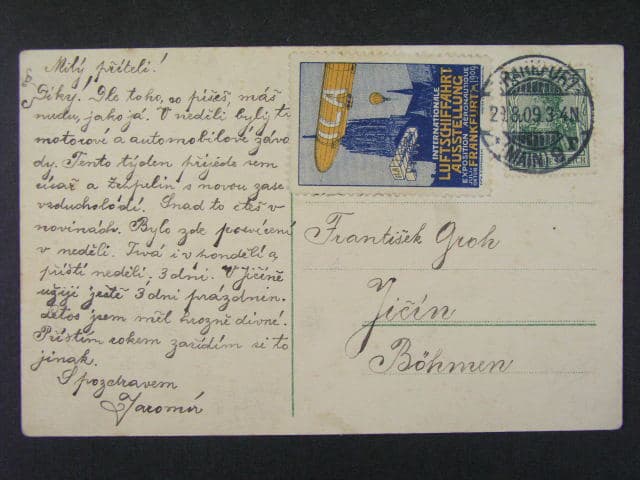 Milý příteli!
Díky. Dle toho, co píšeš, máš
nudu, jako já. V neděli byly tu
motorové a automobilové závo
dy. Tento týden přijede sem
císař a Zeppelin s novou zase
vzducholodí. Snad to čteš v
novinách. Bylo zde posvícení
v neděli. Trvá i v pondělí a
příští neděli. 3 dni. V Jičíně
užiji ještě 3 dni prázdnin.
Letos jsem měl hrozně divné.
Příštím rokem zařídím si to
jinak.
S pozdravem
Jaromír
ILA
INTERNATIONALE
LUFTSCHIFFAHRT
AUSSTELLUNG
EXPOSITION AERONAUTIQUE
FRANKFURT 1909
FRANKFURT
8.09.3-4N
(MAIN)
REICH
František Groh
Jičín
Böhmen